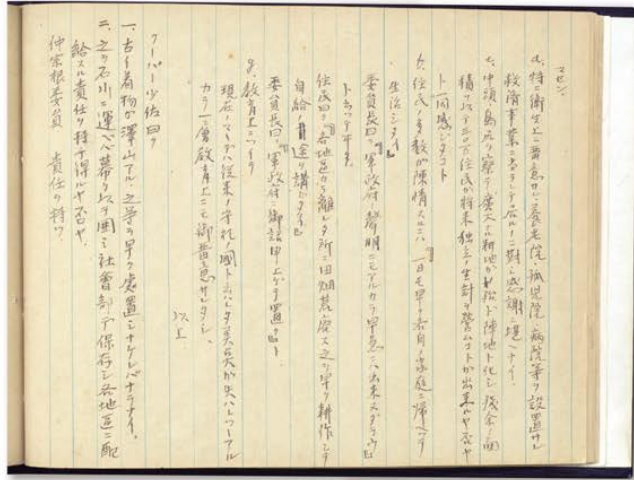 マセン。
d、特ニ衛生上ニ留意サレ、養老院、孤児院、病院等ヲ設置サレ
救済事業ニ尽力シテ居ルノニ対シ感謝ニ堪ヘナイ。
e、中頭島尻ヲ察テ広大ナル耕地ガ軍陣地ト化シ残余ノ面
積ヲ以テ三十万住民ガ将来独立ノ生計ヲ営ムコトガ出来ルヤ否ヤ
ト一同感ジタコト
f、住民ノ多数ガ陳情スルニハ、『一日モ早ク各自ノ家庭ニ帰ヘッテ
生活シタイ』
委員長曰ク『軍政府ノ声明ニモアルカラ早急ニハ出来ヌダラウ』
ト云ッテヰタ。
住民曰ク『各地区カラ離レタ所ニ田畑荒廃ス之ヲ早ク耕作シテ
自給ノ途ヲ講ジタイ』
委員長曰ク『軍政府ニ御話申上ゲテ置ク』ト
g、教育上ニツイテ
現在ノママデハ従来ノ守礼ノ国ト云ハレタ美点ガ失ハレツツアル
カラ一層教育上ニモ御留意サレタシ。
以上
クーパー少佐曰ク
一、古イ着物ガ沢山アル、之等ヲ早ク処置シナケレバナラナイ。
二、之ヲ石川ニ運ベバ幕ヲ以テ囲ミ社會部デ保存シ各地區ニ配
給スル責任ヲ持チ得ルヤ否ヤ。
仲宗根委員 責任ヲ持ツ。